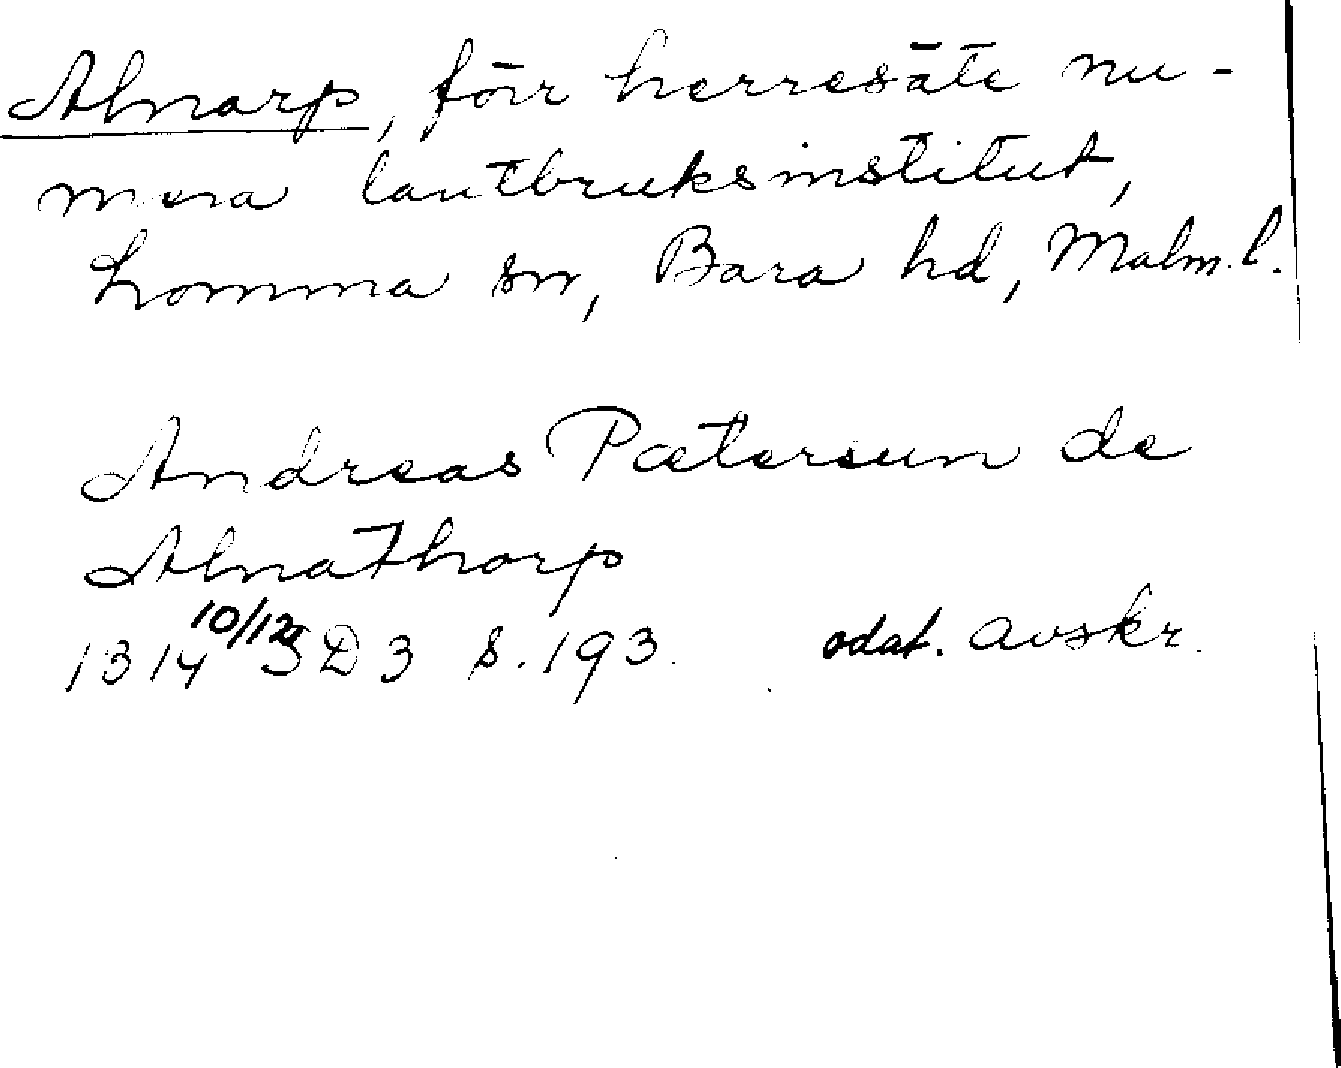 Alnarp, förr herresäte nu-
mera lantbruksinstitut,
Lomma sn, Bara hd, Malm. l.
Andreas Pætersun de
Alnathorp
1314 10/12 SD 3 S. 193. odat. avskr.